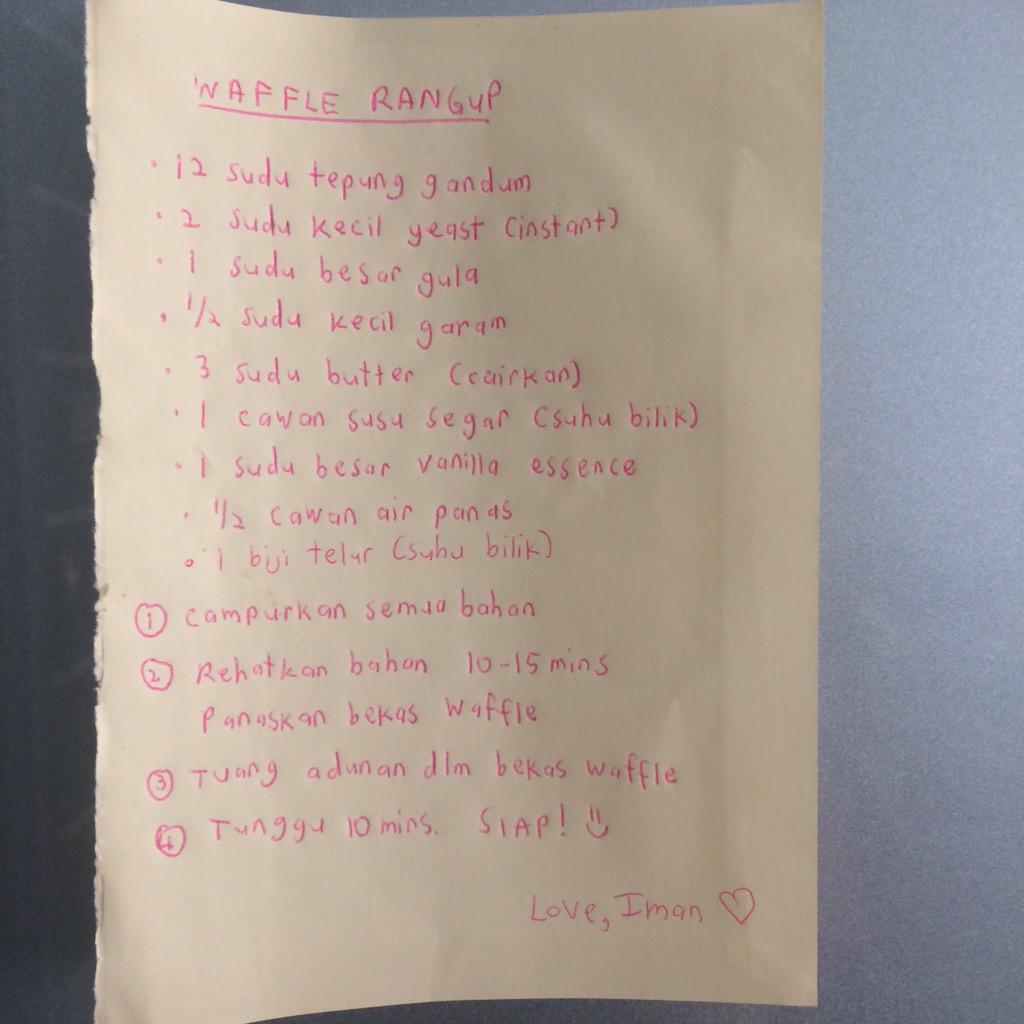 WAFFLE RANGUP
• 12 sudu tepung gandum
• 2 sudu kecil yeast (instant)
• 1 sudu besar gula
• 1/2 sudu kecil garam
• 3 sudu butter (cairkan)
• 1 cawan susu segar (suhu bilik)
• 1 sudu besar vanilla essence
• 1/2 cawan air panas
• 1 biji telur (suhu bilik)
① Campurkan semua bahan
② Rehatkan bahan 10-15 mins
Panaskan bekas waffle
③ Tuang adunan dlm bekas waffle
④ Tunggu 10 mins. SIAP! ☺
Love, Iman ♡